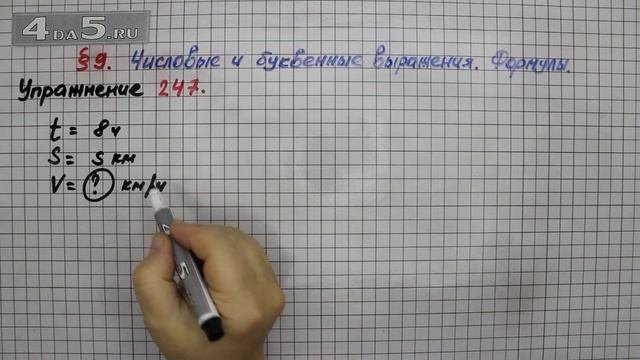 4DA5.RU
§9. Числовые и буквенные выражения. Формулы.
Упражнение 247.
t = 8 ч
S = s км
V = ? км/ч